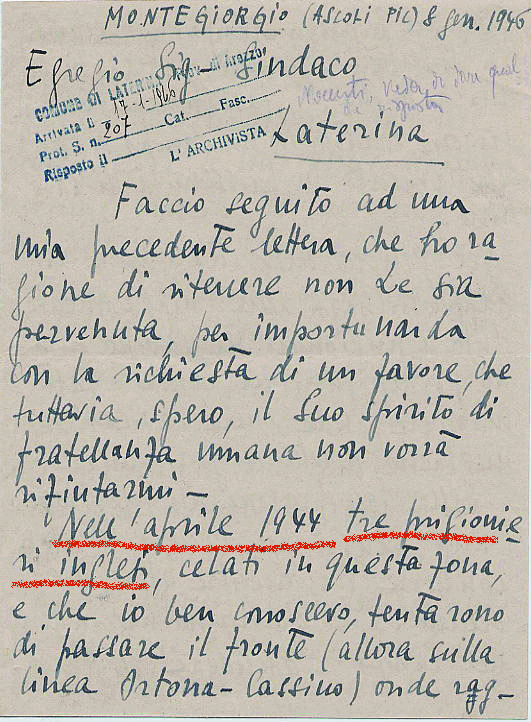 MONTEGIORGIO (ASCOLI PIC) 8 gen. 1946
Egregio Sig. Sindaco
COMUNE DI LATERINA (Prov. di Arezzo)
Arrivata il 17-1-1946
Prot. S. n. 207 Cat. Fasc.
Risposto il
L'ARCHIVISTA
veda di dare
Laterina
Faccio seguito ad una
mia precedente lettera, che ho ra
gione di ritenere non Le sia
pervenuta, per importunarla
con la richiesta di un favore, che
tuttavia, spero, il Suo spirito di
fratellanza umana non vorrà
rifiutarmi –
Nell'aprile 1944 tre prigionie
ri inglesi, celati in questa zona,
e che io ben conoscevo, tentarono
di passare il fronte (allora sulla
linea Ortona-Cassino) onde rag-